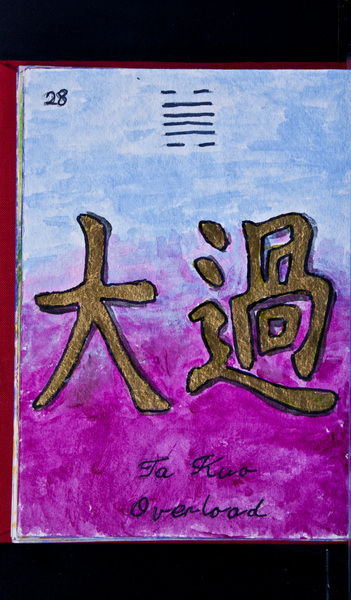 28
大過
Ta Kuo
Overload